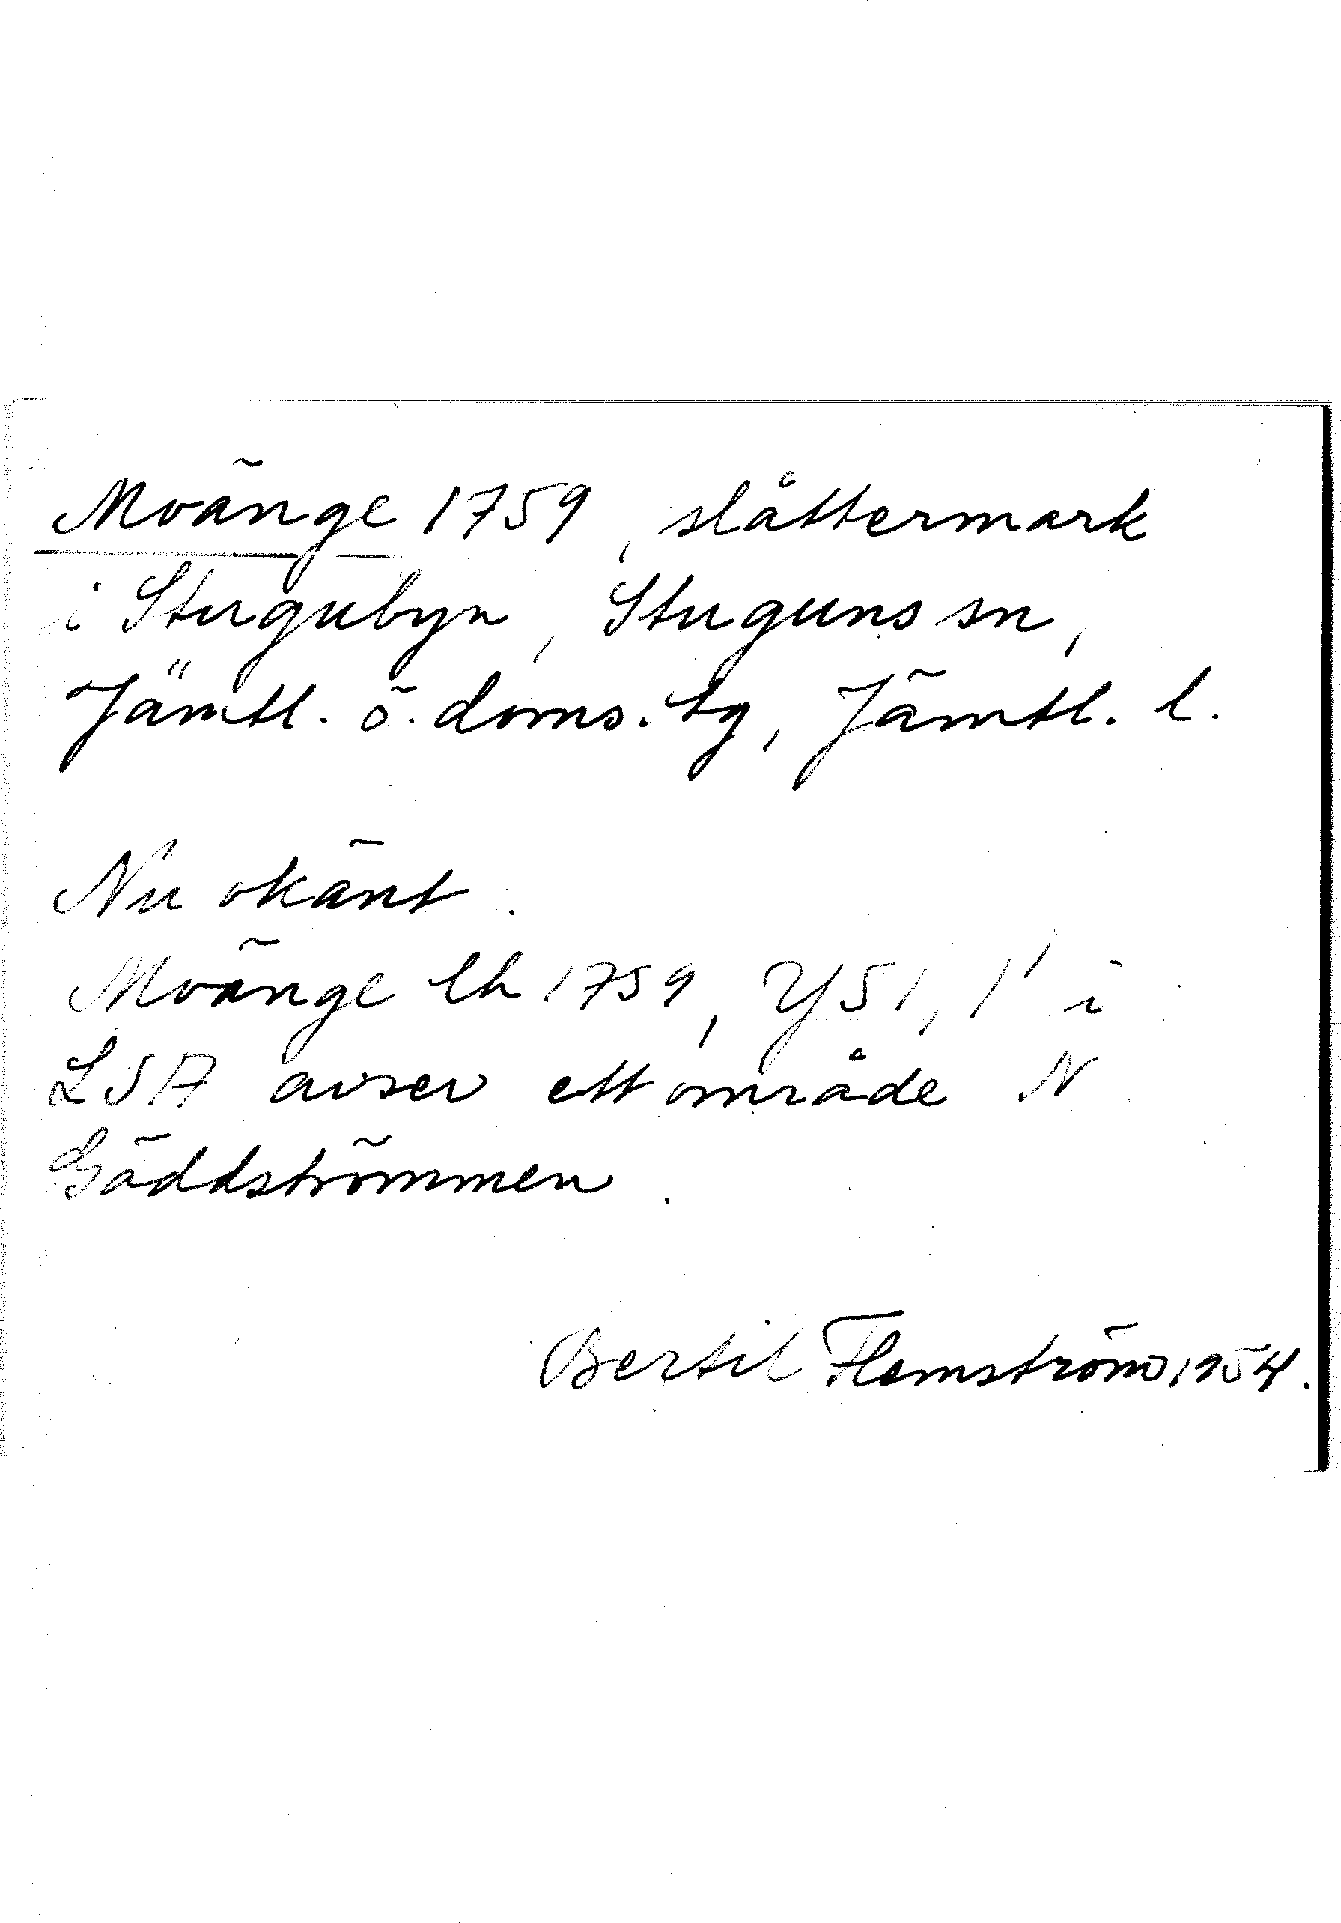 Mvänge 1759, slåttermark
i Stugubyn, Stuguns sn,
Jämtl. ö. doms. tg, Jämtl. l.
Nu okänt.
Mvänge lh 1759, Y51, 1' i
LSA avser ett område N
Gäddströmmen.
Bertil Flemström 1954.